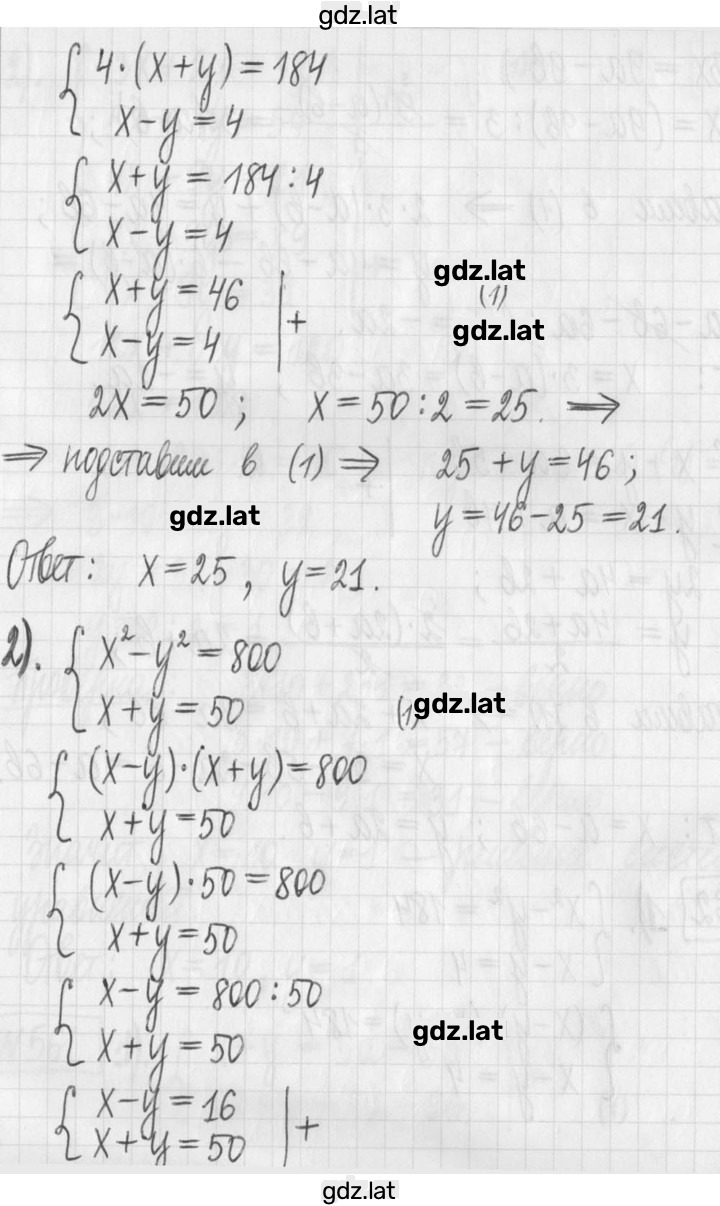 gdz.lat
4·(x+y)=184
x-y=4
x+y=184:4
x-y=4
gdz.lat
x+y=46 (1)
x-y=4 | +
gdz.lat
2x=50; x=50:2=25. ⇒
⇒ подставим в (1) ⇒ 25+y=46;
gdz.lat
y=46-25=21.
Ответ: x=25, y=21.
2). x²-y²=800
x+y=50 (1)
gdz.lat
(x-y)·(x+y)=800
x+y=50
(x-y)·50=800
x+y=50
x-y=800:50
x+y=50
gdz.lat
x-y=16
x+y=50 | +
gdz.lat